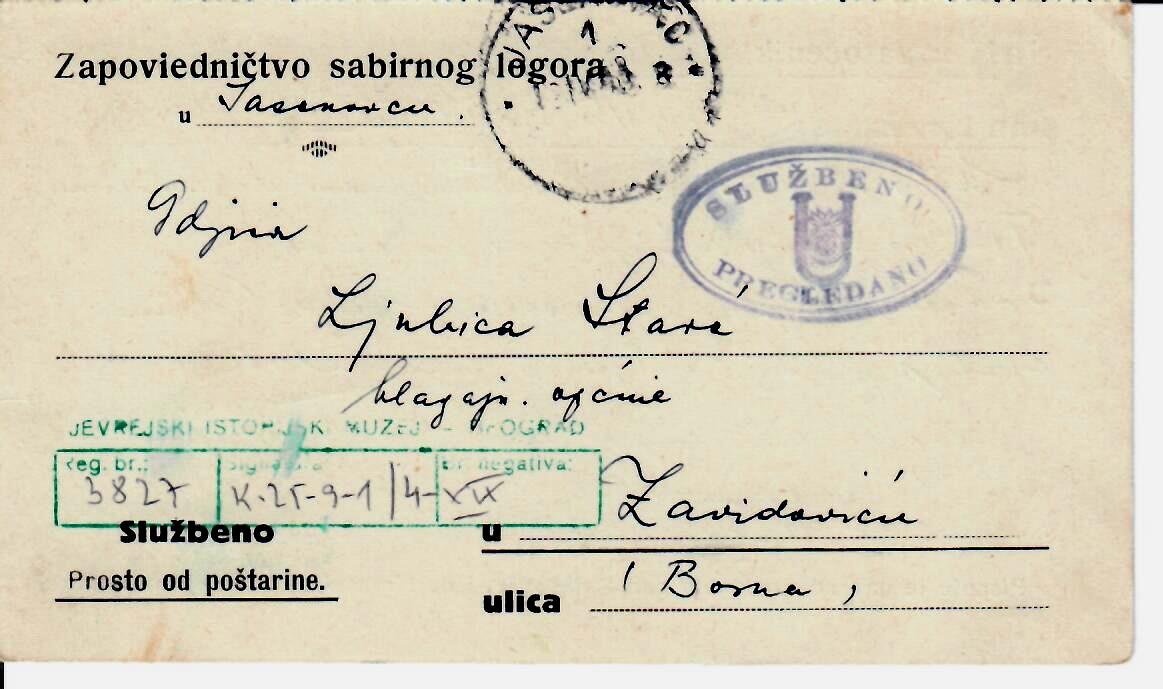 Zapoviedničtvo sabirnog logora
u Jasenovcu.
JASENOVAC
1
SLUŽBENO
PREGLEDANO
Gdjica
Ljubica Starć
blagajn. općine
JEVREJSKI ISTORIJSKI MUZEJ - BEOGRAD
Reg. br.: Signatura Br. negativa:
3827 K.25-9-1/4-
Službeno
u Zavidoviću
Prosto od poštarine.
(Bosna)
ulica